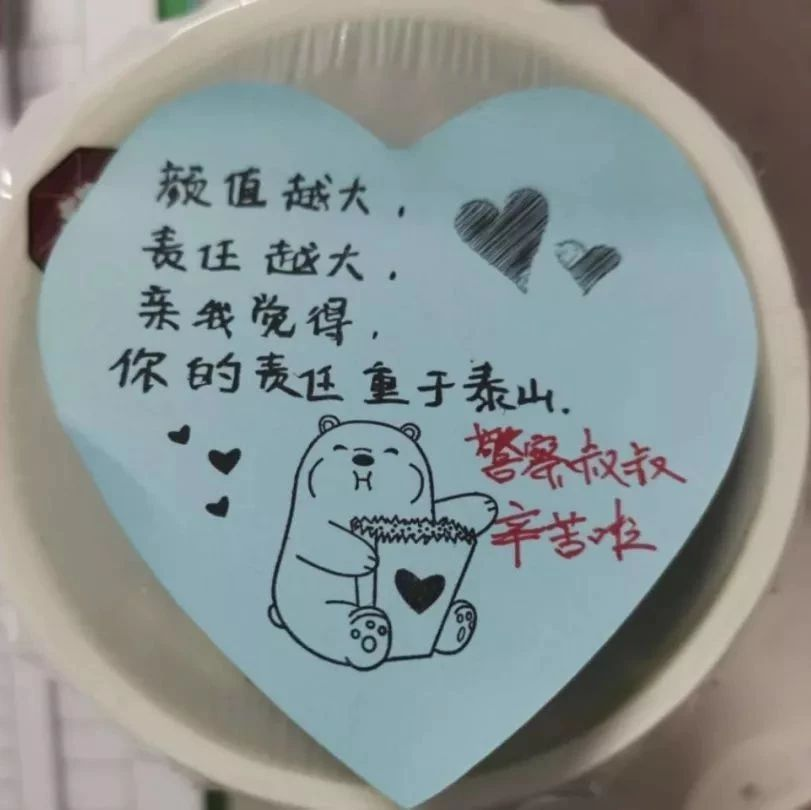 颜值越大，
责任越大，
亲我觉得，
你的责任重于泰山.
警察叔叔
辛苦啦